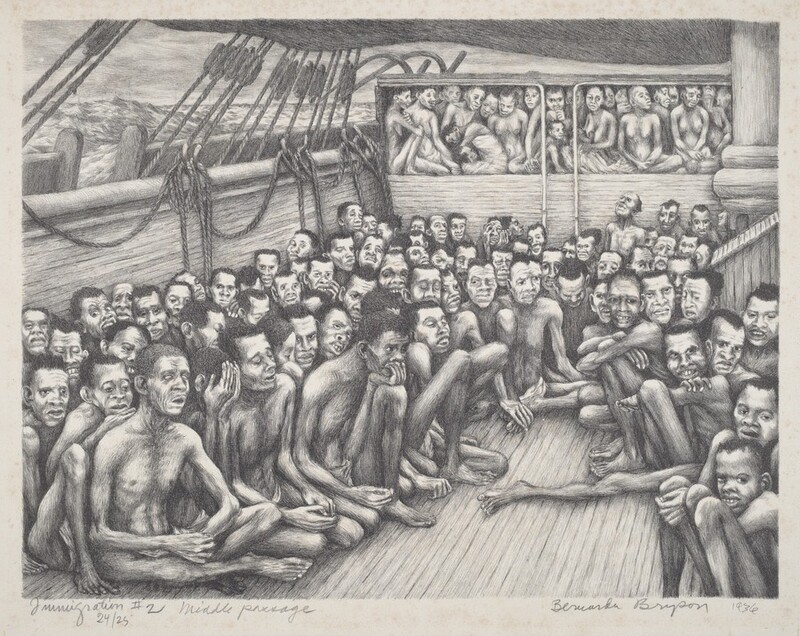 Immigration #2 Middle passage Bernarda Bryson 1936
24/25